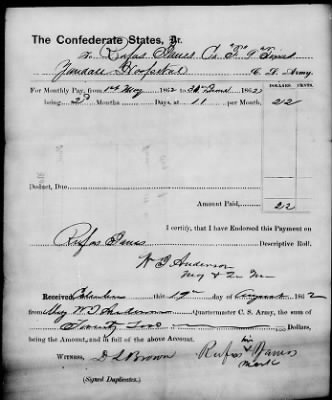 The Confederate States, Dr.
To Rufus Co. F. 9
Hospital C. S. Army.
DOLLARS. CENTS.
For Monthly Pay, from 1st May 1862 to 30th June 1862 22
being 2 Months Days, at 11 per Month,
Deduct, Due
Amount Paid, 22
I certify, that I have Endorsed this Payment on
Rufus Descriptive Roll.
W. T. Anderson
Maj & Qr. Mr.
Received this 19th day of August 1862
from Maj W. T. Anderson Quartermaster C. S. Army, the sum of
Twenty Two Dollars,
being the Amount, and in full of the above Account.
Witness, D L Brown Rufus his
X
mark
(Signed Duplicates.)